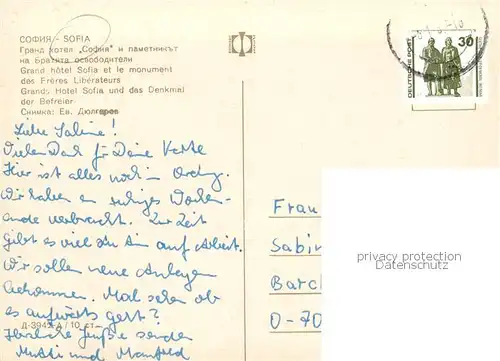 СОФИЯ - SOFIA
Гранд хотел „София" и паметникът
на Братята освободители
Grand hôtel Sofia et le monument
des Frères Libérateurs
Grands Hotel Sofia und das Denkmal
der Befreier
Снимка: Ев. Дюлгеров
Liebe Sabine!
Vielen Dank für Deine Karte
Hier ist alles noch in Ordng.
Wir haben ein ruhiges Wochen-
ende verbracht. Zur Zeit
gibt es viel zu tun auf Arbeit.
Wir sollen neue Anlagen
bekommen. Mal sehen ob
es aufwärts geht?
Herzliche Grüße senden
Mutti und Manfred
Д-3945-А / 10 ст.
DEUTSCHE POST
30
Frau
Sabin
Barc
O-70
privacy protection
Datenschutz